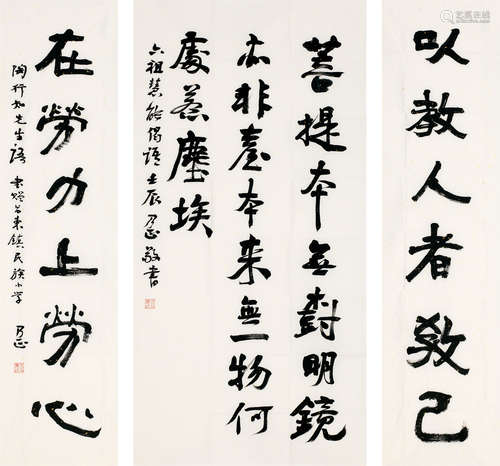 以教人者教己
菩提本無樹明鏡
亦非臺本來無一物何
處惹塵埃
六祖慧能偈語壬辰乃正敬書
在勞力上勞心
陶行知先生語 書贈台東鎮民族小学 乃正